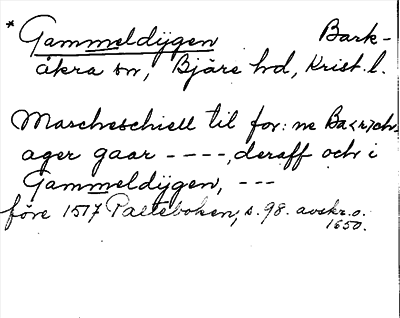 * Gammeldijgen Bark-
åkra sn, Bjäre hd, Krist. l.
Marcheschiell til for:ne Ba<r>chr-
ager gaar ----, deraff och i
Gammeldijgen, ---
före 1517 Palteboken, s. 98. avskr. o.
1650.